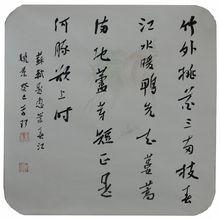 竹外桃花三两枝春
江水暖鸭先知蒌蒿
满地芦芽短正是
河豚欲上时
苏轼惠崇春江
晚景癸巳